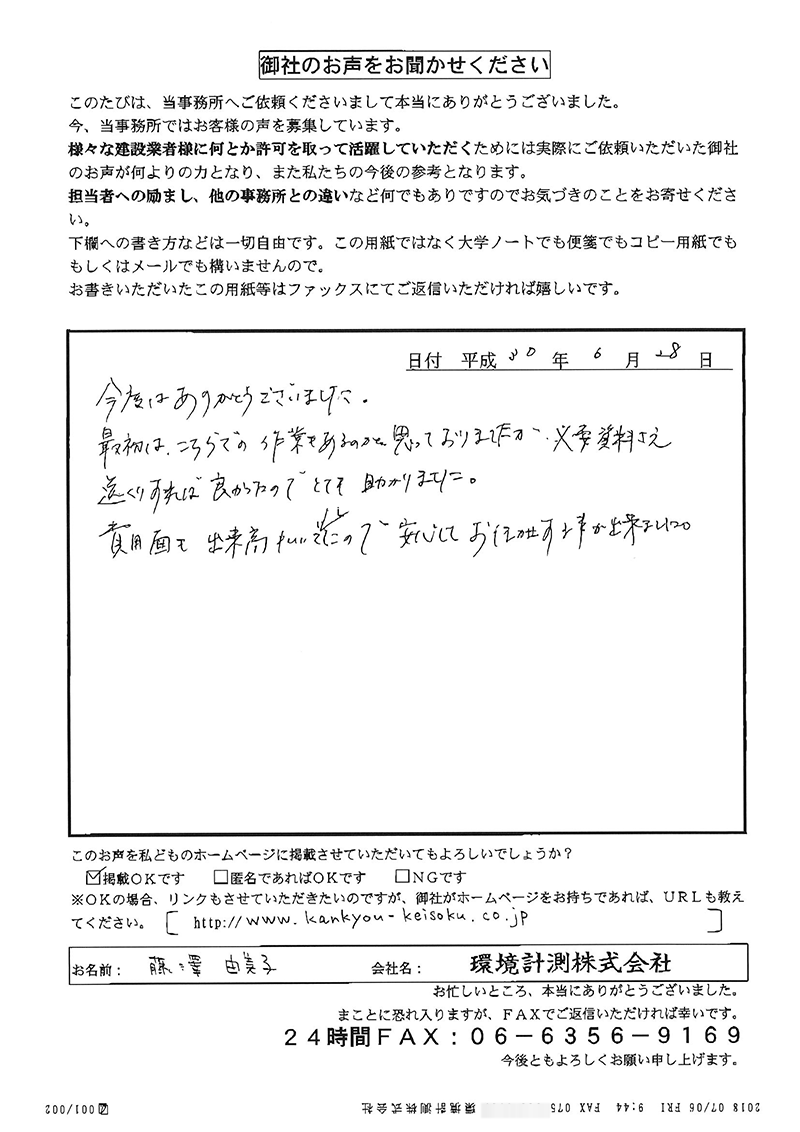 御社のお声をお聞かせください
このたびは、当事務所へご依頼くださいまして本当にありがとうございました。
今、当事務所ではお客様の声を募集しています。
様々な建設業者様に何とか許可を取って活躍していただくためには実際にご依頼いただいた御社
のお声が何よりの力となり、また私たちの今後の参考となります。
担当者への励まし、他の事務所との違いなど何でもありですのでお気づきのことをお寄せくださ
い。
下欄への書き方などは一切自由です。この用紙ではなく大学ノートでも便箋でもコピー用紙でも
もしくはメールでも構いませんので。
お書きいただいたこの用紙等はファックスにてご返信いただければ嬉しいです。
日付 平成 30 年 6 月 28 日
今度はありがとうございました。
最初は、こちらでの作業もあるのかと思っておりましたが、必要資料さえ
送くりすれば良かったのでとても助かりました。
費用面も 出来高払い でしたので 安心してお任せする事が出来ました。
このお声を私どものホームページに掲載させていただいてもよろしいでしょうか？
☑掲載ＯＫです □匿名であればＯＫです □ＮＧです
※ＯＫの場合、リンクもさせていただきたいのですが、御社がホームページをお持ちであれば、ＵＲＬも教え
てください。 [ http://www.kankyou-keisoku.co.jp ]
お名前： 藤澤 由美子 会社名： 環境計測株式会社
お忙しいところ、本当にありがとうございました。
まことに恐れ入りますが、ＦＡＸでご返信いただければ幸いです。
２４時間ＦＡＸ：０６－６３５６－９１６９
今後ともよろしくお願い申し上げます。
2018 07/06 FRI 9:44 FAX 075 環境計測株式会社 001/002